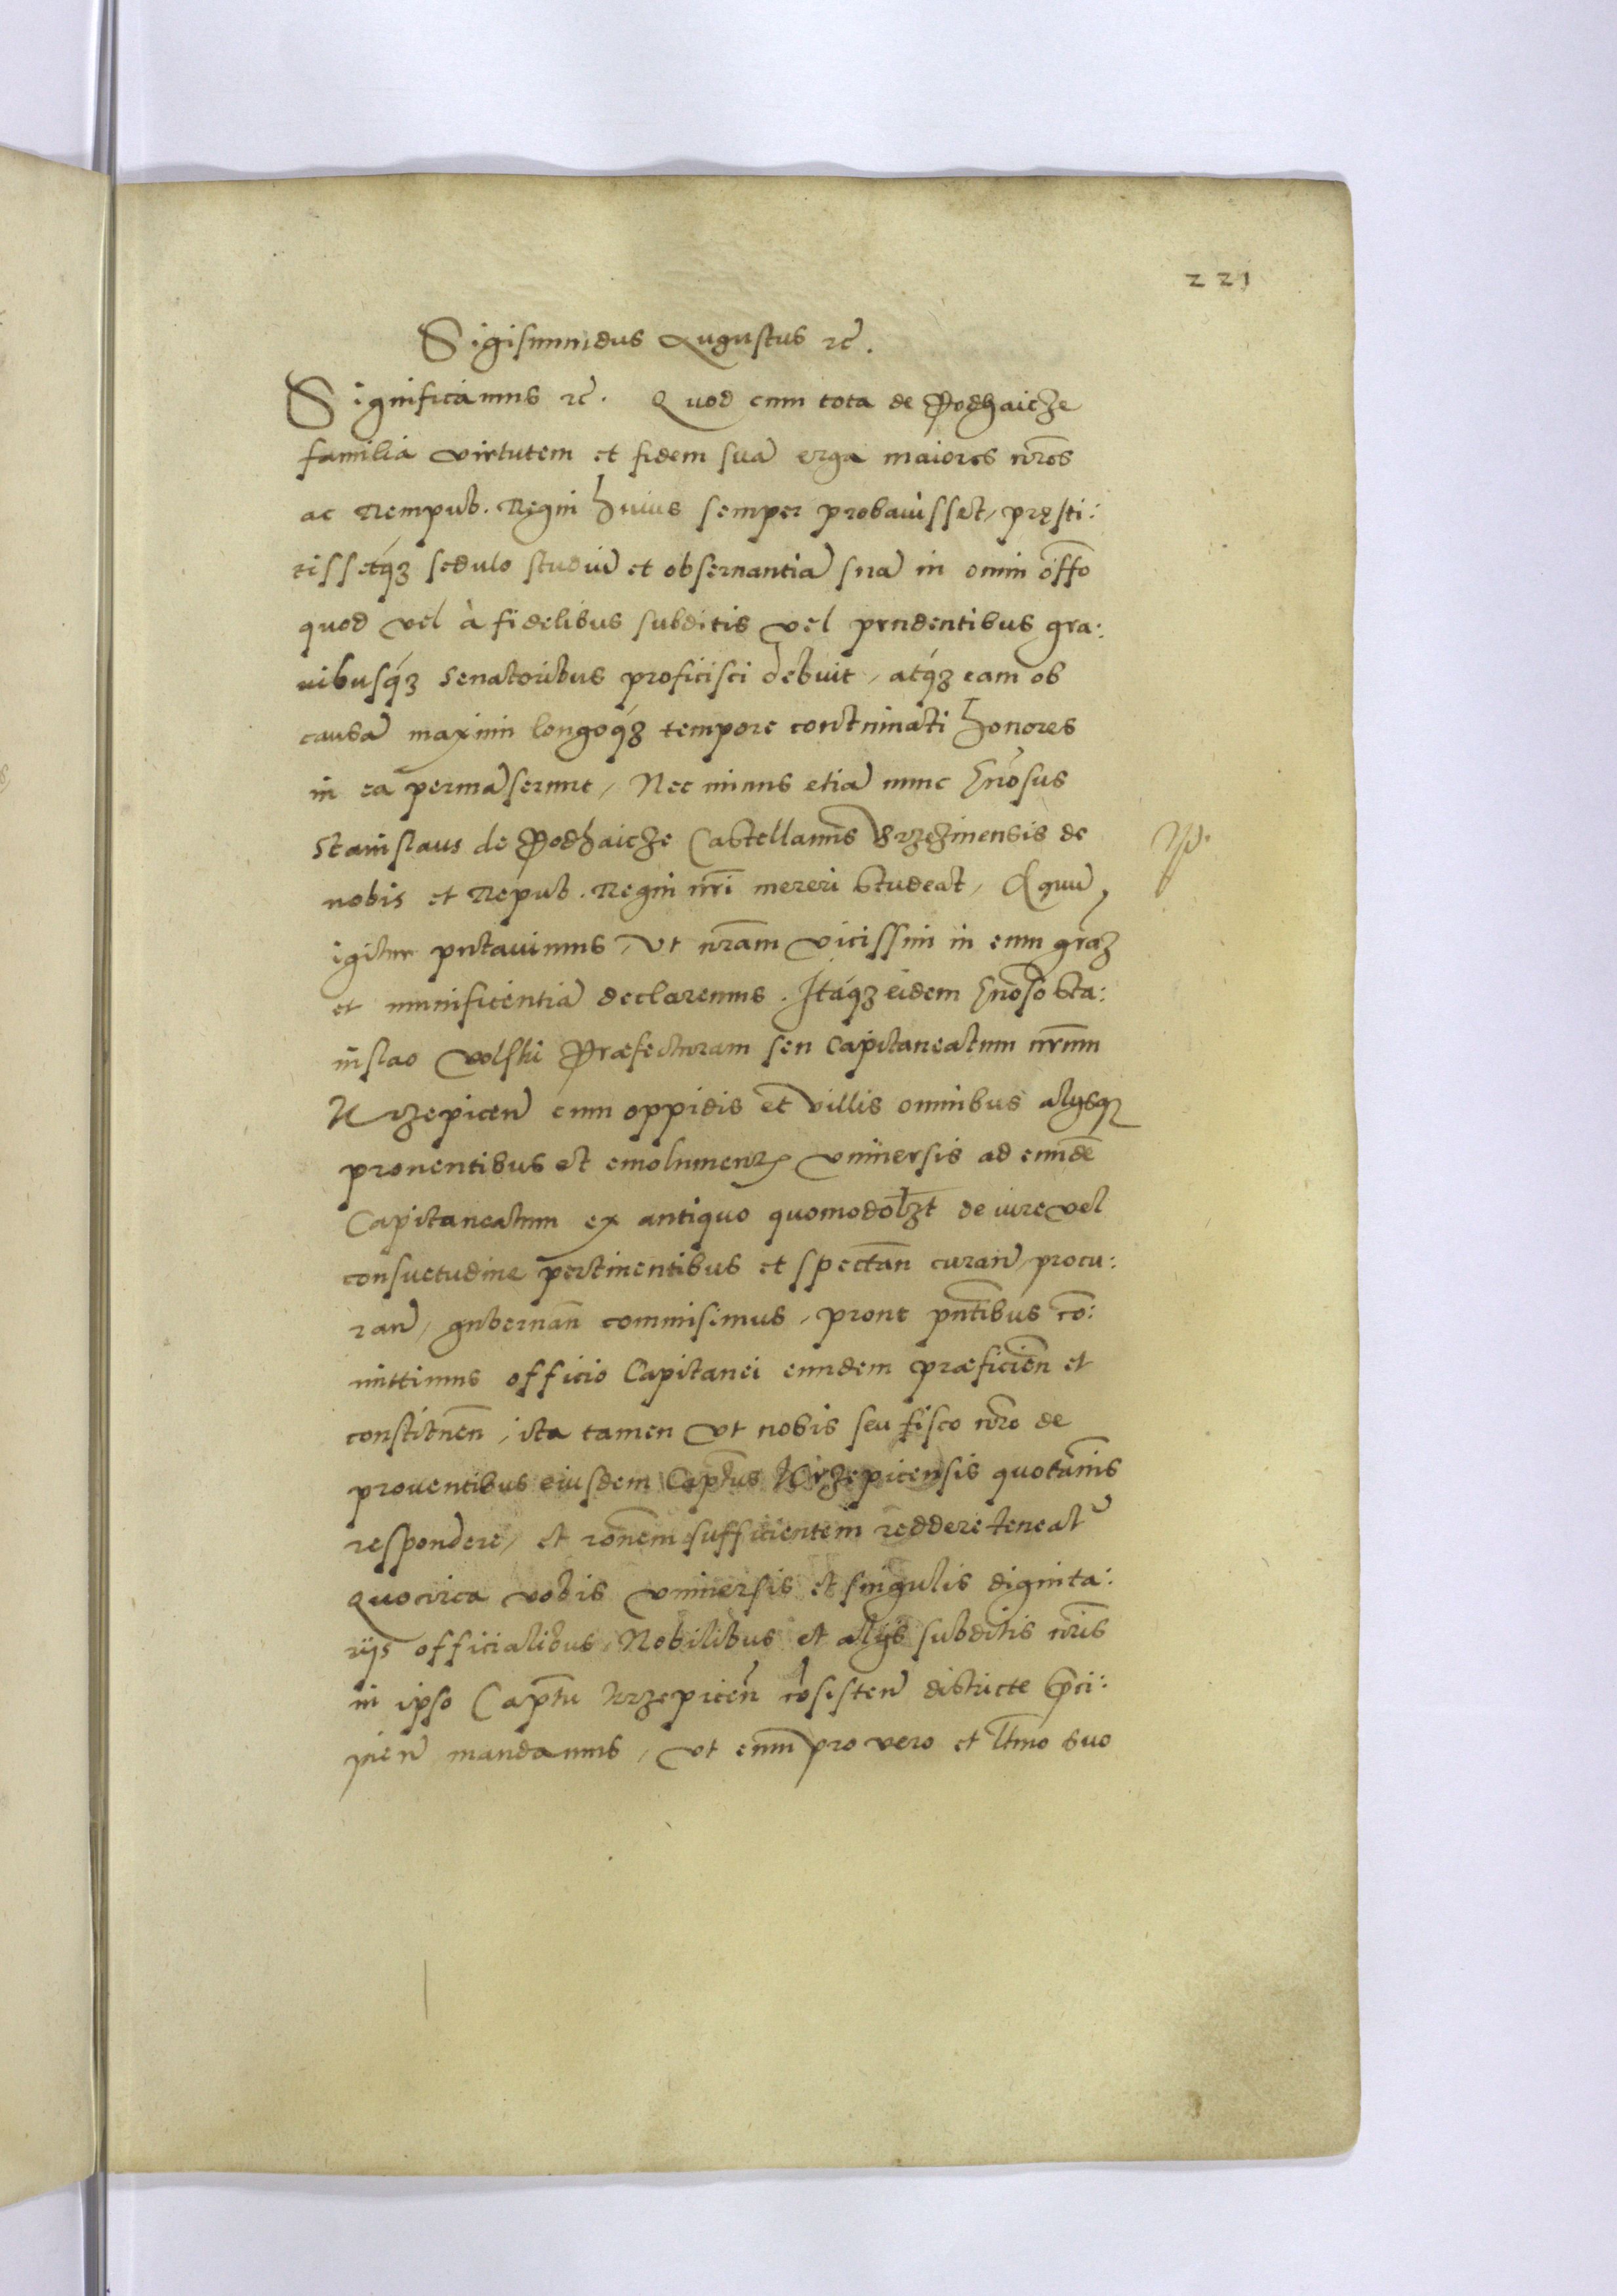 221
Sigismundus Augustus rc̃.
Significamus rc̃. Quod cum tota de Podhaicze
familia virtutem et fidem suã erga maiores nr̃os
ac Rempub. Regni huius semper probauisset, pręsti:
tissetq́ʒ sedulo studiũ et obseruantiã suã in omni off̃o
quod vel à fidelibus subditis vel prudentibus gra:
uibusq́ʒ senatoribus proficisci debuit, atq́ʒ eam ob
causã maximi longoq́ʒ tempore continuati honores
in ea permãserunt, Nec minus etiã nunc Gñosus
Stanislaus de Podhaicze Castellanus Brzezinensis de
nobis et Repub. Regni nr̃i mereri studeat, Æquũ
igitur putauimus, vt nr̃am vicissim in eum gr̃aʒ
et munificentiã declaremus. Itaq́ʒ eidem Gñoso Sta:
nislao Volski Præfecturam seu Capitaneatum nr̃um
Krzepiceñ cum oppidis et villis omnibus alijsqʒ
prouentibus et emolumentꝭ vniuersis ad eundẽ
Capitaneatum ex antiquo quomodolʒt de iure vel
consuetudine pertinentibus et spectañ curañ, procu:
rañ, gubernañ commisimus, prout pñtibus cõ:
mittimus officio Capitanei eundem præficieñ et
constitueñ, ita tamen vt nobis seu fisco nr̃o de
prouentibus eiusdem Captũs Krzepicensis quotannis
respondere, et rõnem sufficientem reddere teneatᷣ
Quocirca vobis vniuersis et singulis dignita:
rijs officialibus, Nobilibus et alijs subditis nr̃is
in ipso Captũ Krzepiceñ cõsisteñ districte p̃ci:
pieñ mandamus, vt eum pro vero et l̃tmo suo